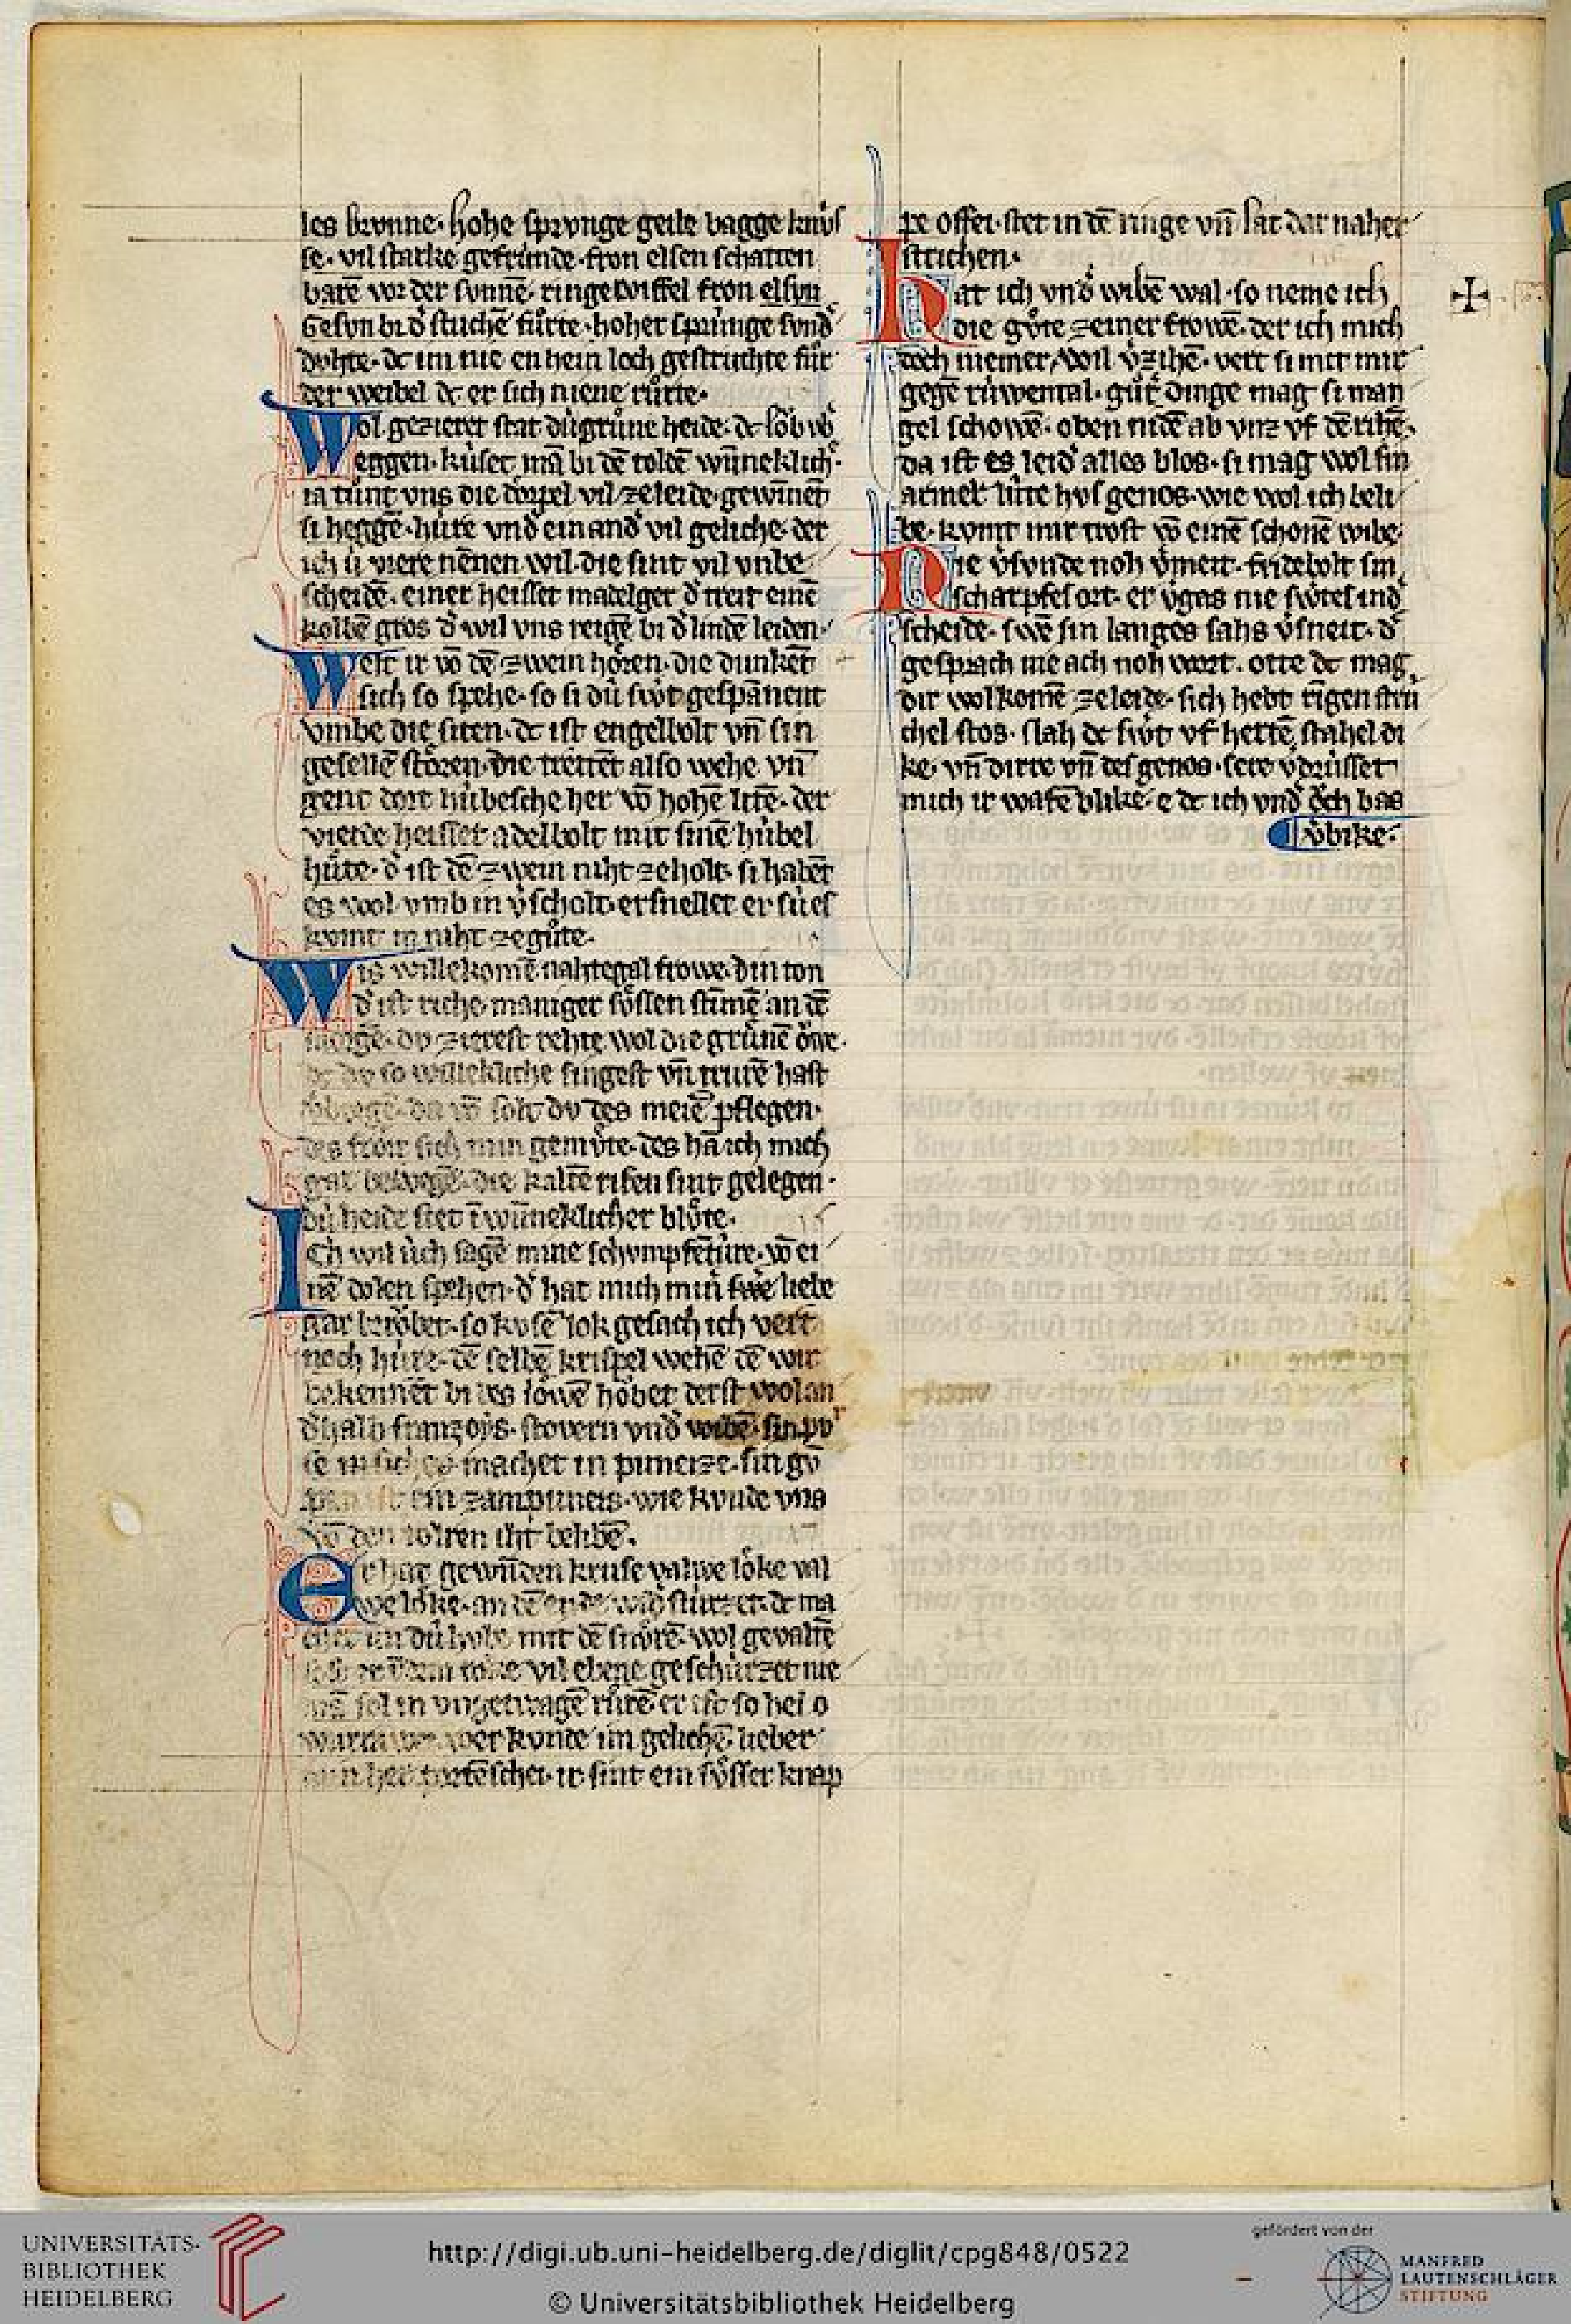 les brvnne. hohe sprvnge geile bagge knúſ
se. vil starke gefrúnde fron elsen schatten
barē vor der svnnē. ringe wiffel fron elsvn
Gesvn bi d᷑ stuchē fůrte. hoher sprúnge svnd᷑
dvhte. dc im nie enhein loch gestruchte fúr
der weibel dc er sich niene růrte.
Wol gezieret stat dú grůne heide. dc lǒb vō
eggen. kúset mā bi dē toldē wūneklich.
ia tůnt vns die dörpel vil ze leide. gewinnēt
si heggē. húte vnd᷑ einand᷑ vil geliche. der
ich ú viere nēnen wil. die sint vil vnbe
scheidē. einer heisset madelger d᷑ treit einē
kolbē gros d᷑ wil vns reigē bi d᷑ lindē leiden.
Welt ir vō dē zwein hören. die dunkēt
sich so spehe. so si dú swˢt gespānent
vmbe die siten. dc ist engelbolt vn̄ sin
gesellē stören. die trettēt also wehe vn̄
gent dort húbesche her vō hohē litē. der
vierde heisset adelbolt mit sinē húbel
hůte. d᷑ ist dē zwein niht ze holt. si habēt
es wol vmb in v᷑scholt. ersnellet er sú es
komt in niht ze gůte.
Wis willekomē nahtegal frowe. din ton
d᷑ ist riche. maniger sǒssen stīmē an dē
morgē. dv zierest rehte wol die grůnē ǒwe.
dc dv so willekliche singest vn̄ trurē hast
solt dv des meiē pflegen.
des fröit sich min gemůte. des hā ich mich
gar bewegē. die kaltē rifen sint gelegen.
dú heide stet ī wūneklicher blůte.
Ich wil úch sagē mine schvmpfētúre. vō ei
nē dolen spehen. d᷑ hat mich minˢ swē liebe
gar berǒbet. so kvsē lok gesach ich vert
noch húre. dē selbē krispel wehē dē wir
bekennēt bi des lǒwē höbet derst wol an
d᷑halb franzoys. stovern vnd᷑ wibē. sin pv
se in machet in punerze. sin gv
ein zampuneis. wie kvnde vns
vō den toren iht belibē.
Er hat gewūden kruse valwe löke val
we löke. an dē ende wid᷑ stúrzet. dc ma
chet im dú hvbe mit dē snůrē. wol gevaltē
vil ebene geschúrzet nie
mā sol in vngetwagē růrē er ist so hei o
wer kvnde im gelichē lieber
her toretscher. ir sint ein sǒsser knap
pe offer. stet in dē ringe vn̄ lat dar naher
strichen.
Hat ich vnd᷑ wibē wal. so neme ich
die gůte ze einer frowē. der ich mich
doch niemer wil v᷑zihē. vert si mit mir
gegē rúwental. gůtˢ dinge mag si man
gel schowē. oben nidē ab vnz vf dē rihē.
da ist es leid᷑ alles blos. si mag wol sin
armer lúte hvſ genos. wie wol ich beli
be. kvmt mir trost vō einē schonē wibe.
Nie v᷑svnde noh v᷑meit. fridebolt sin
scharpfes ort. er v᷑gas nie swˢtes ind᷑
scheide. swē sin langes sahs v᷑sneit. d᷑
gesprach nie ach noh wort. otte dc mag
dir wol komē ze leide. sich hebt tīgen strú
chel stos. slah dc swˢt vf hertē stahel di
ke. vn̄ dirre vn̄ des genos. sere v᷑drússet
mich ir wafē blike. e dc ich vnd᷑ ǒch bas
v᷑bike.
UNIVERSITÄTS-
BIBLIOTHEK
HEIDELBERG
http://digi.ub.uni-heidelberg.de/diglit/cpg848/0522
© Universitätsbibliothek Heidelberg
gefördert von der
MANFRED
LAUTENSCHLÄGER
STIFTUNG